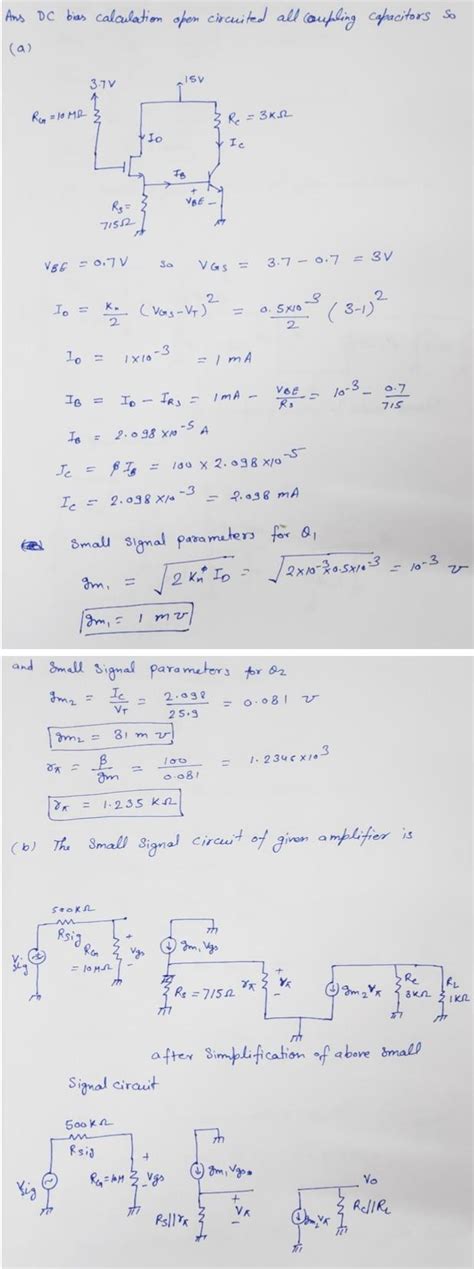 Ans DC bias calculation open circuited all coupling capacitors so
(a)
3.7V
15V
RG = 10 MΩ
Rc = 3KΩ
ID
Ic
IB
+
VBE -
Rs =
715Ω
VBE = 0.7V so VGS = 3.7 - 0.7 = 3V
ID = Kn/2 (VGS - VT)^2 = 0.5x10^-3/2 (3-1)^2
ID = 1x10^-3 = 1 mA
IB = ID - IRs = 1mA - VBE/Rs = 10^-3 - 0.7/715
IB = 2.098 x10^-5 A
Ic = βIB = 100 x 2.098x10^-5
Ic = 2.098 x10^-3 = 2.098 mA
Small Signal parameters for Q1
gm1 = √(2 Kn ID) = √(2x10^-3x0.5x10^-3) = 10^-3 ʋ
gm1 = 1 m ʋ
and Small Signal parameters for Q2
gm2 = Ic/VT = 2.098/25.9 = 0.081 ʋ
gm2 = 81 m ʋ
rπ = β/gm = 100/0.081 = 1.2345 x10^3
rπ = 1.235 KΩ
(b) The Small Signal circuit of given amplifier is
500KΩ
Rsig
Vsig
RG
= 10MΩ
+
Vgs
-
gm1 Vgs
Rs = 715Ω
rπ
+
Vπ
-
gm2 Vπ
Rc
3KΩ
RL
1KΩ
after Simplification of above small
Signal circuit
500KΩ
Rsig
Vsig
RG=10M
+
Vgs
-
gm1 Vgs
Rs//rπ
+
Vπ
-
Vo
gm2 Vπ
Rc//RL